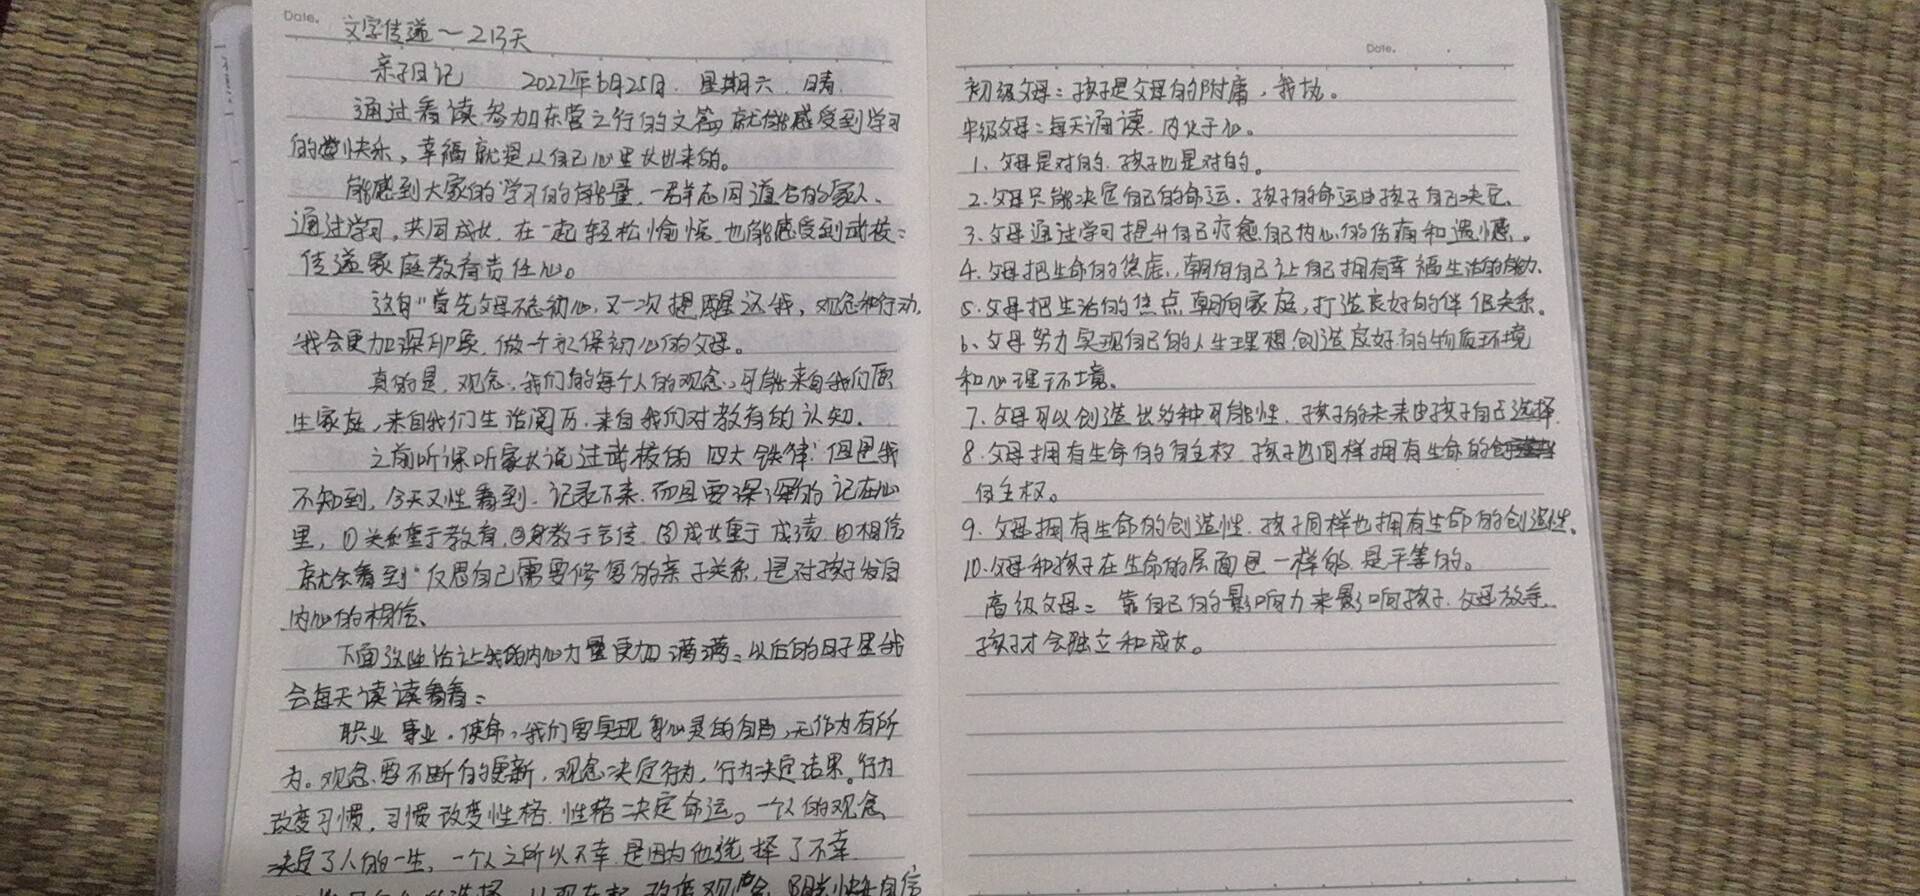 Date.
文字传递～213天
亲子日记 2022年6月25日. 星期六. 晴.
通过看读参加东营之行的文篇, 就能感受到学习
的快乐, 幸福就是从自己心里长出来的。
能感到大家的学习的能量, 一群志同道合的家人、
通过学习, 共同成长. 在一起轻松愉悦. 也能感受到武校:
传递家庭教育责任心。
这句"首先父母不忘初心, 又一次提醒这我, 观念和行动,
我会更加深印象, 做一个永保初心的父母。
真的是, 观念, 我们的每个人的观念, 可能来自我们原
生家庭, 来自我们生活阅历, 来自我们对教育的认知.
之前听课听家长说过武校的 四大铁律: 但是我
不知到, 今天又性看到. 记录下来. 而且要深深的记在心
里, ①关系重于教育, ②身教于言传. ③成长重于成绩. ④相信
就会看到" 反思自己需要修复的亲子关系, 是对孩子发自
内心的相信、
下面这些话让我的内心力量更加满满、以后的日子里我
会每天读读看看:
职业 事业. 使命, 我们要实现身心灵的自由, 无作为有所
为。观念要不断的更新, 观念决定行为, 行为决定结果。行为
改变习惯, 习惯改变性格. 性格决定命运。一个人的观念
决定了人的一生, 一个人之所以不幸. 是因为他选择了不幸
Date.
初级父母: 孩子是父母的附庸, 我执。
中级父母: 每天诵读. 内化于心。
1. 父母是对的. 孩子也是对的。
2. 父母只能决定自己的命运. 孩子的命运由孩子自己决定.
3. 父母通过学习提升自己疗愈自己内心的伤痛和遗憾。
4. 父母把生命的焦虑, 朝向自己让自己拥有幸福生活的能力.
5. 父母把生活的焦点朝向家庭, 打造良好的伴侣关系。
6、父母努力实现自己的人生理想创造良好的物质环境
和心理环境。
7. 父母可以创造出多种可能性. 孩子的未来由孩子自己选择.
8. 父母拥有生命的自主权. 孩子也同样拥有生命的
自主权。
9. 父母拥有生命的创造性. 孩子同样也拥有生命的创造性。
10. 父母和孩子在生命的层面是一样的. 是平等的。
高级父母: 靠自己的影响力来影响孩子. 父母放手.
孩子才会独立和成长。